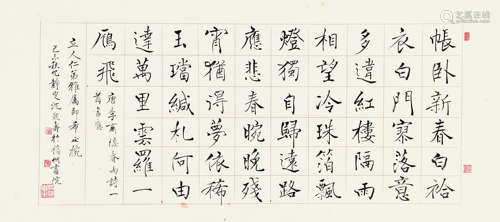 帳臥新春白袷
衣白門寥落意
多違紅樓隔雨
相望冷珠箔飄
燈獨自歸遠路
應悲春晼晚殘
宵猶得夢依稀
玉璫緘札何由
達萬里雲羅一
鴈飛
唐李商隱春雨詩一
首
立人仁弟雅屬即希正